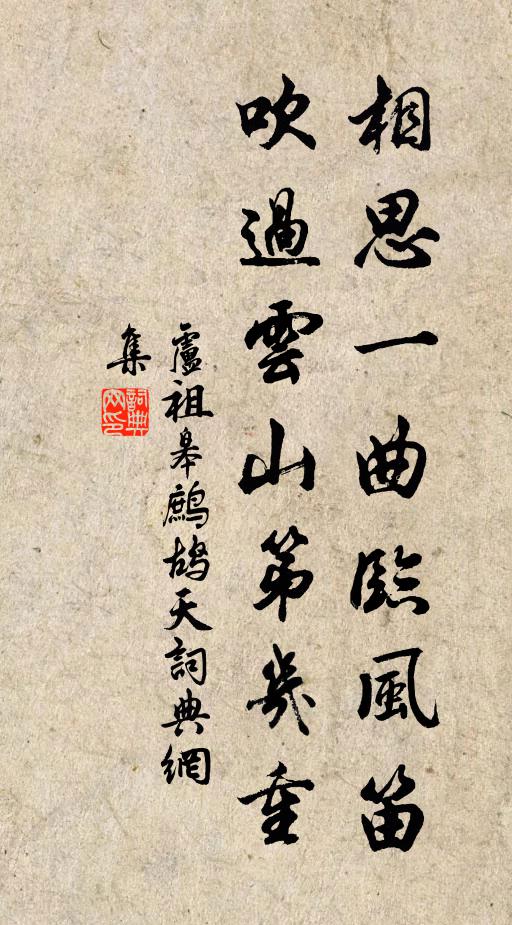 相思一曲臨風笛
吹過雲山第幾重
盧祖皋鷓鴣天詞典網
集
詞典
网印